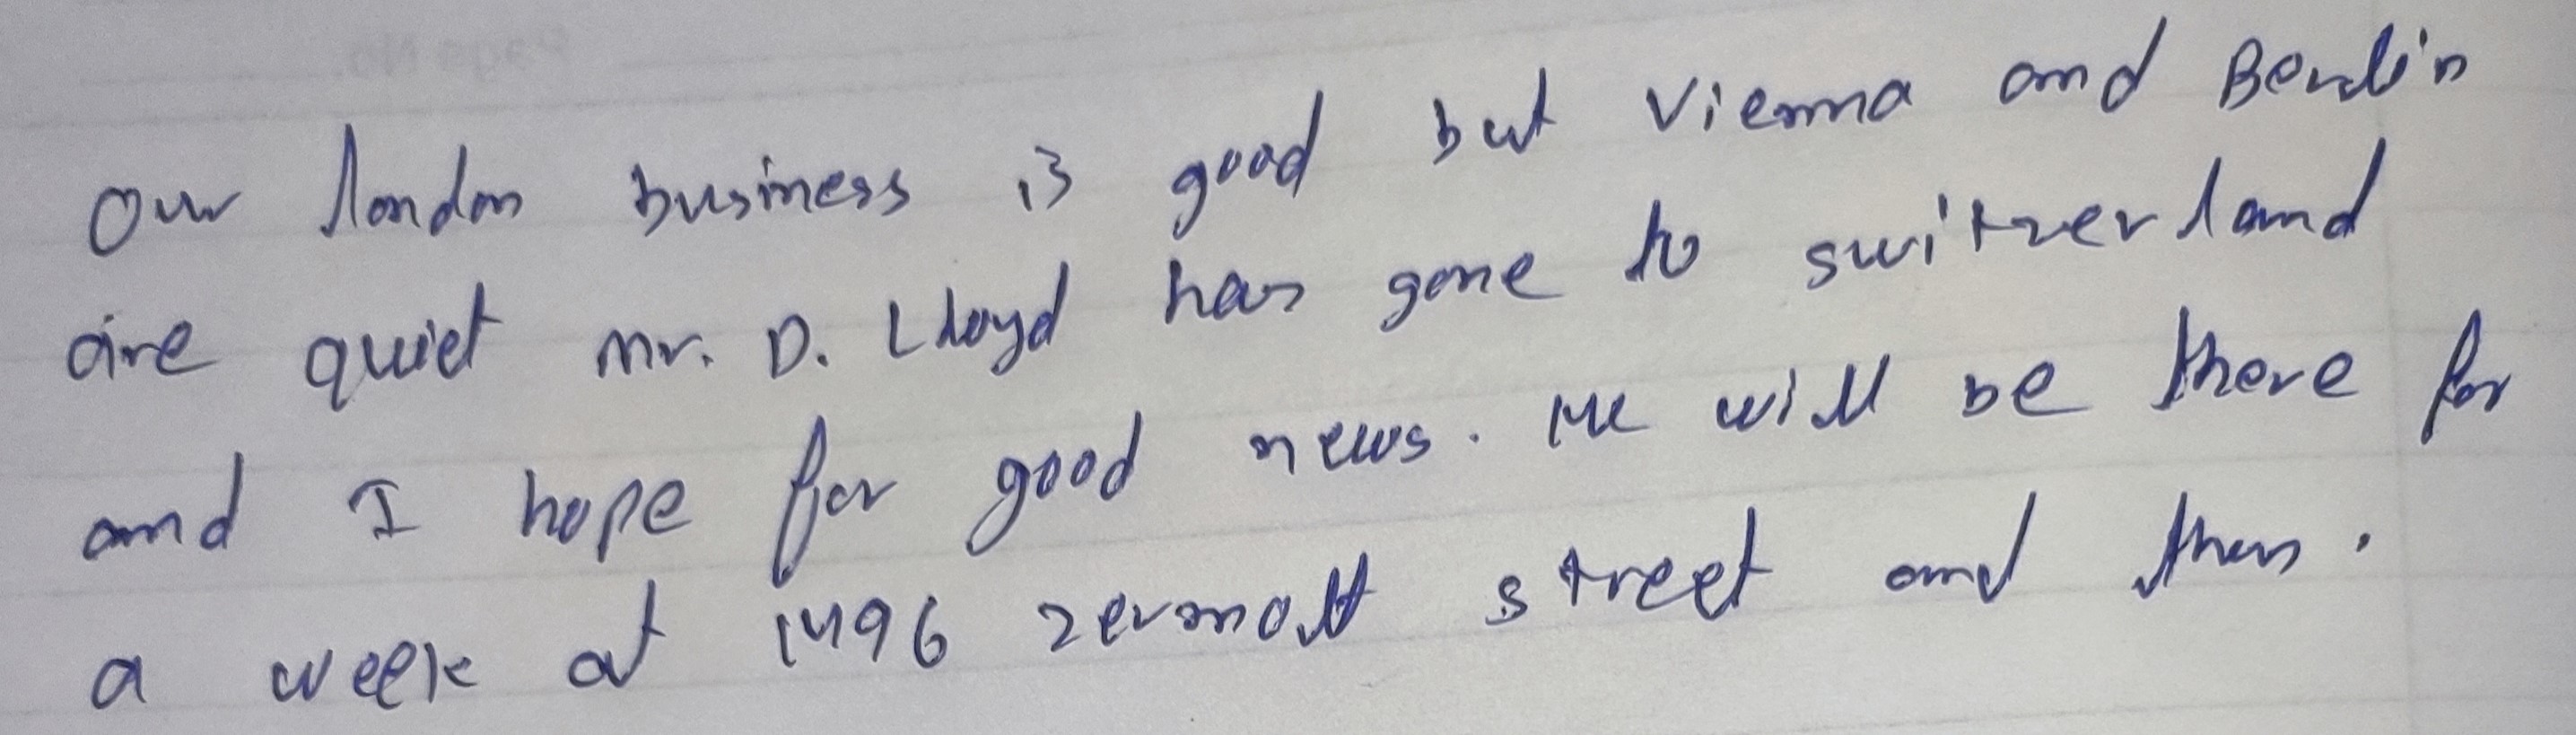 Our london business is good but Vienna and Berlin
are quiet Mr. D. Lloyd has gone to switzerland
and I hope for good news. He will be there for
a week at 1496 zermott street and then.